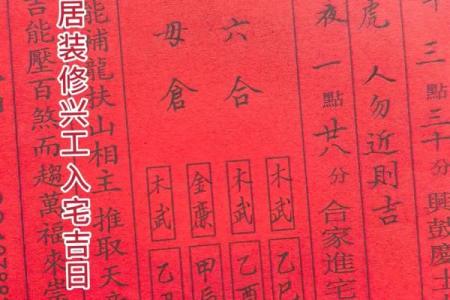 三點三十分興鼓慶土
虎 人勿近則吉
夜一點廿八分合家進宅
六合
毋倉
木武 乙巳
木武 乙酉
金廉 甲辰
木武 乙
能補龍扶山相主 推取天
居装修兴工入宅吉日
吉能壓百煞而趨萬福來